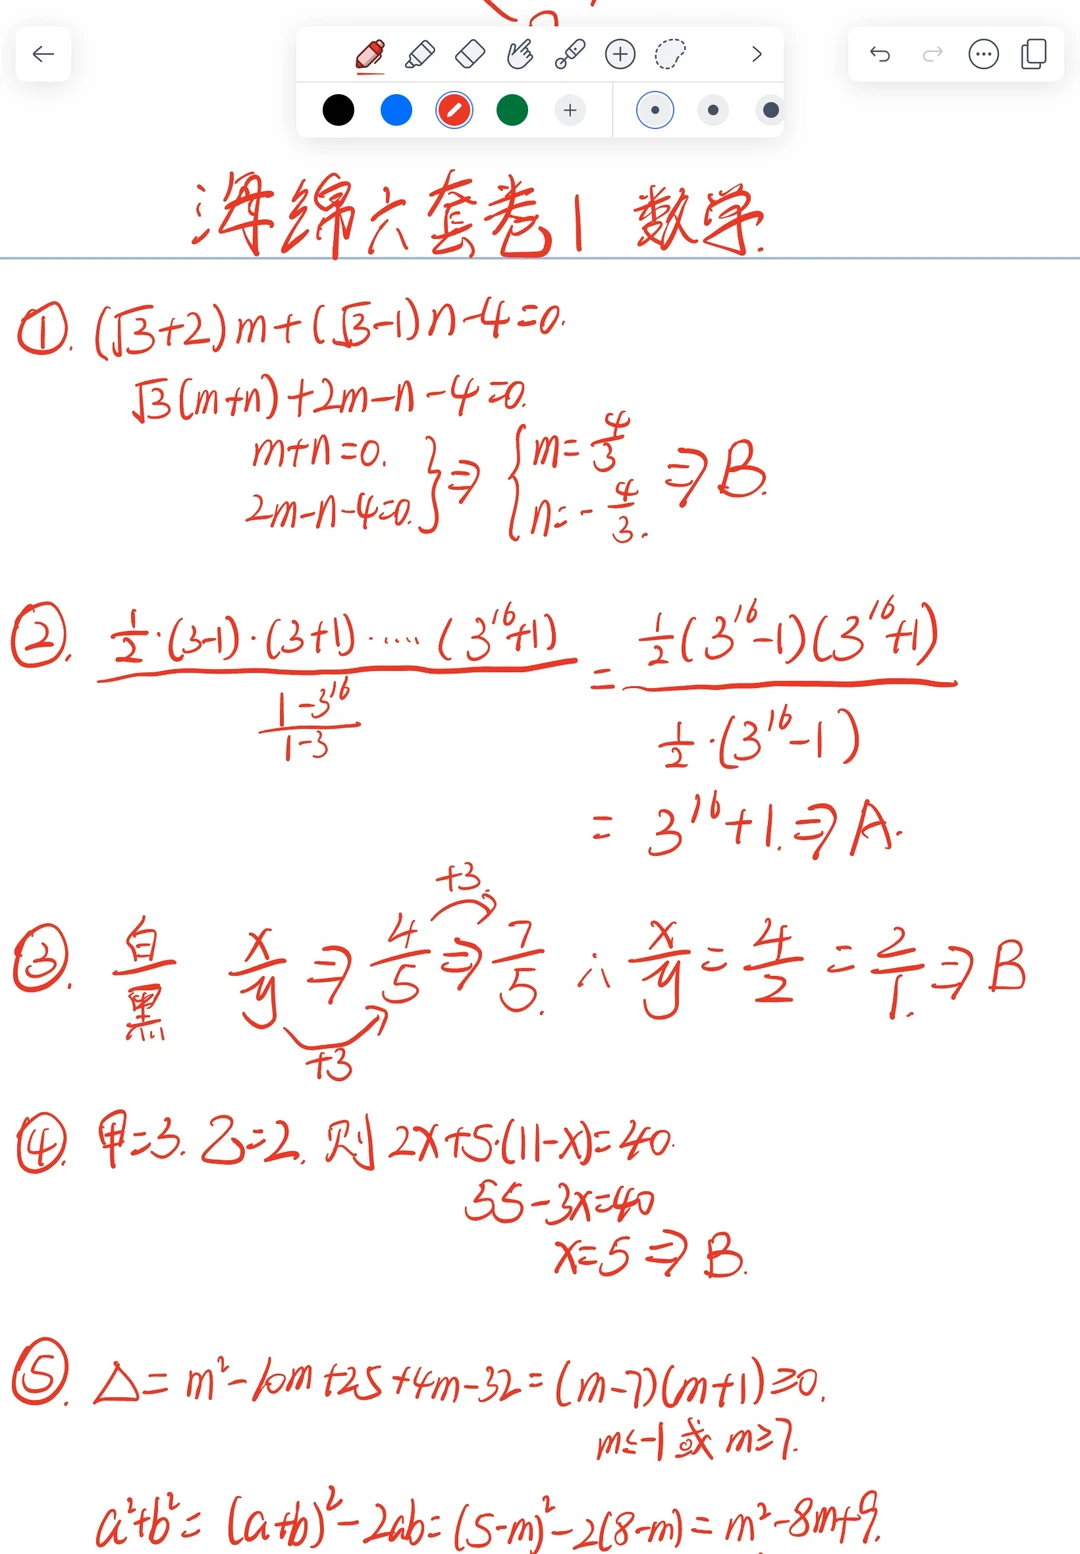 海绵六套卷1 数学.
①. (√3+2)m+(√3-1)n-4=0.
√3(m+n)+2m-n-4=0.
m+n=0.
2m-n-4=0. } ⇒ { m=4/3 n=-4/3. ⇒ B.
②. (1/2·(3-1)·(3+1)·····(3^16+1))/((1-3^16)/(1-3)) = (1/2(3^16-1)(3^16+1))/(1/2·(3^16-1))
= 3^16+1. ⇒ A.
+3.
③. 白/黑 x/y ⇒ 4/5 ⇒ 7/5. ∴ x/y = 4/2 = 2/1. ⇒ B
+3
④. 甲=3. 乙=2. 则 2x+5·(11-x)=40.
55-3x=40
x=5 ⇒ B.
⑤. △= m²-10m+25+4m-32=(m-7)(m+1)≥0.
m≤-1 或 m≥7.
a²+b²= (a+b)²-2ab=(5-m)²-2(8-m)= m²-8m+9.